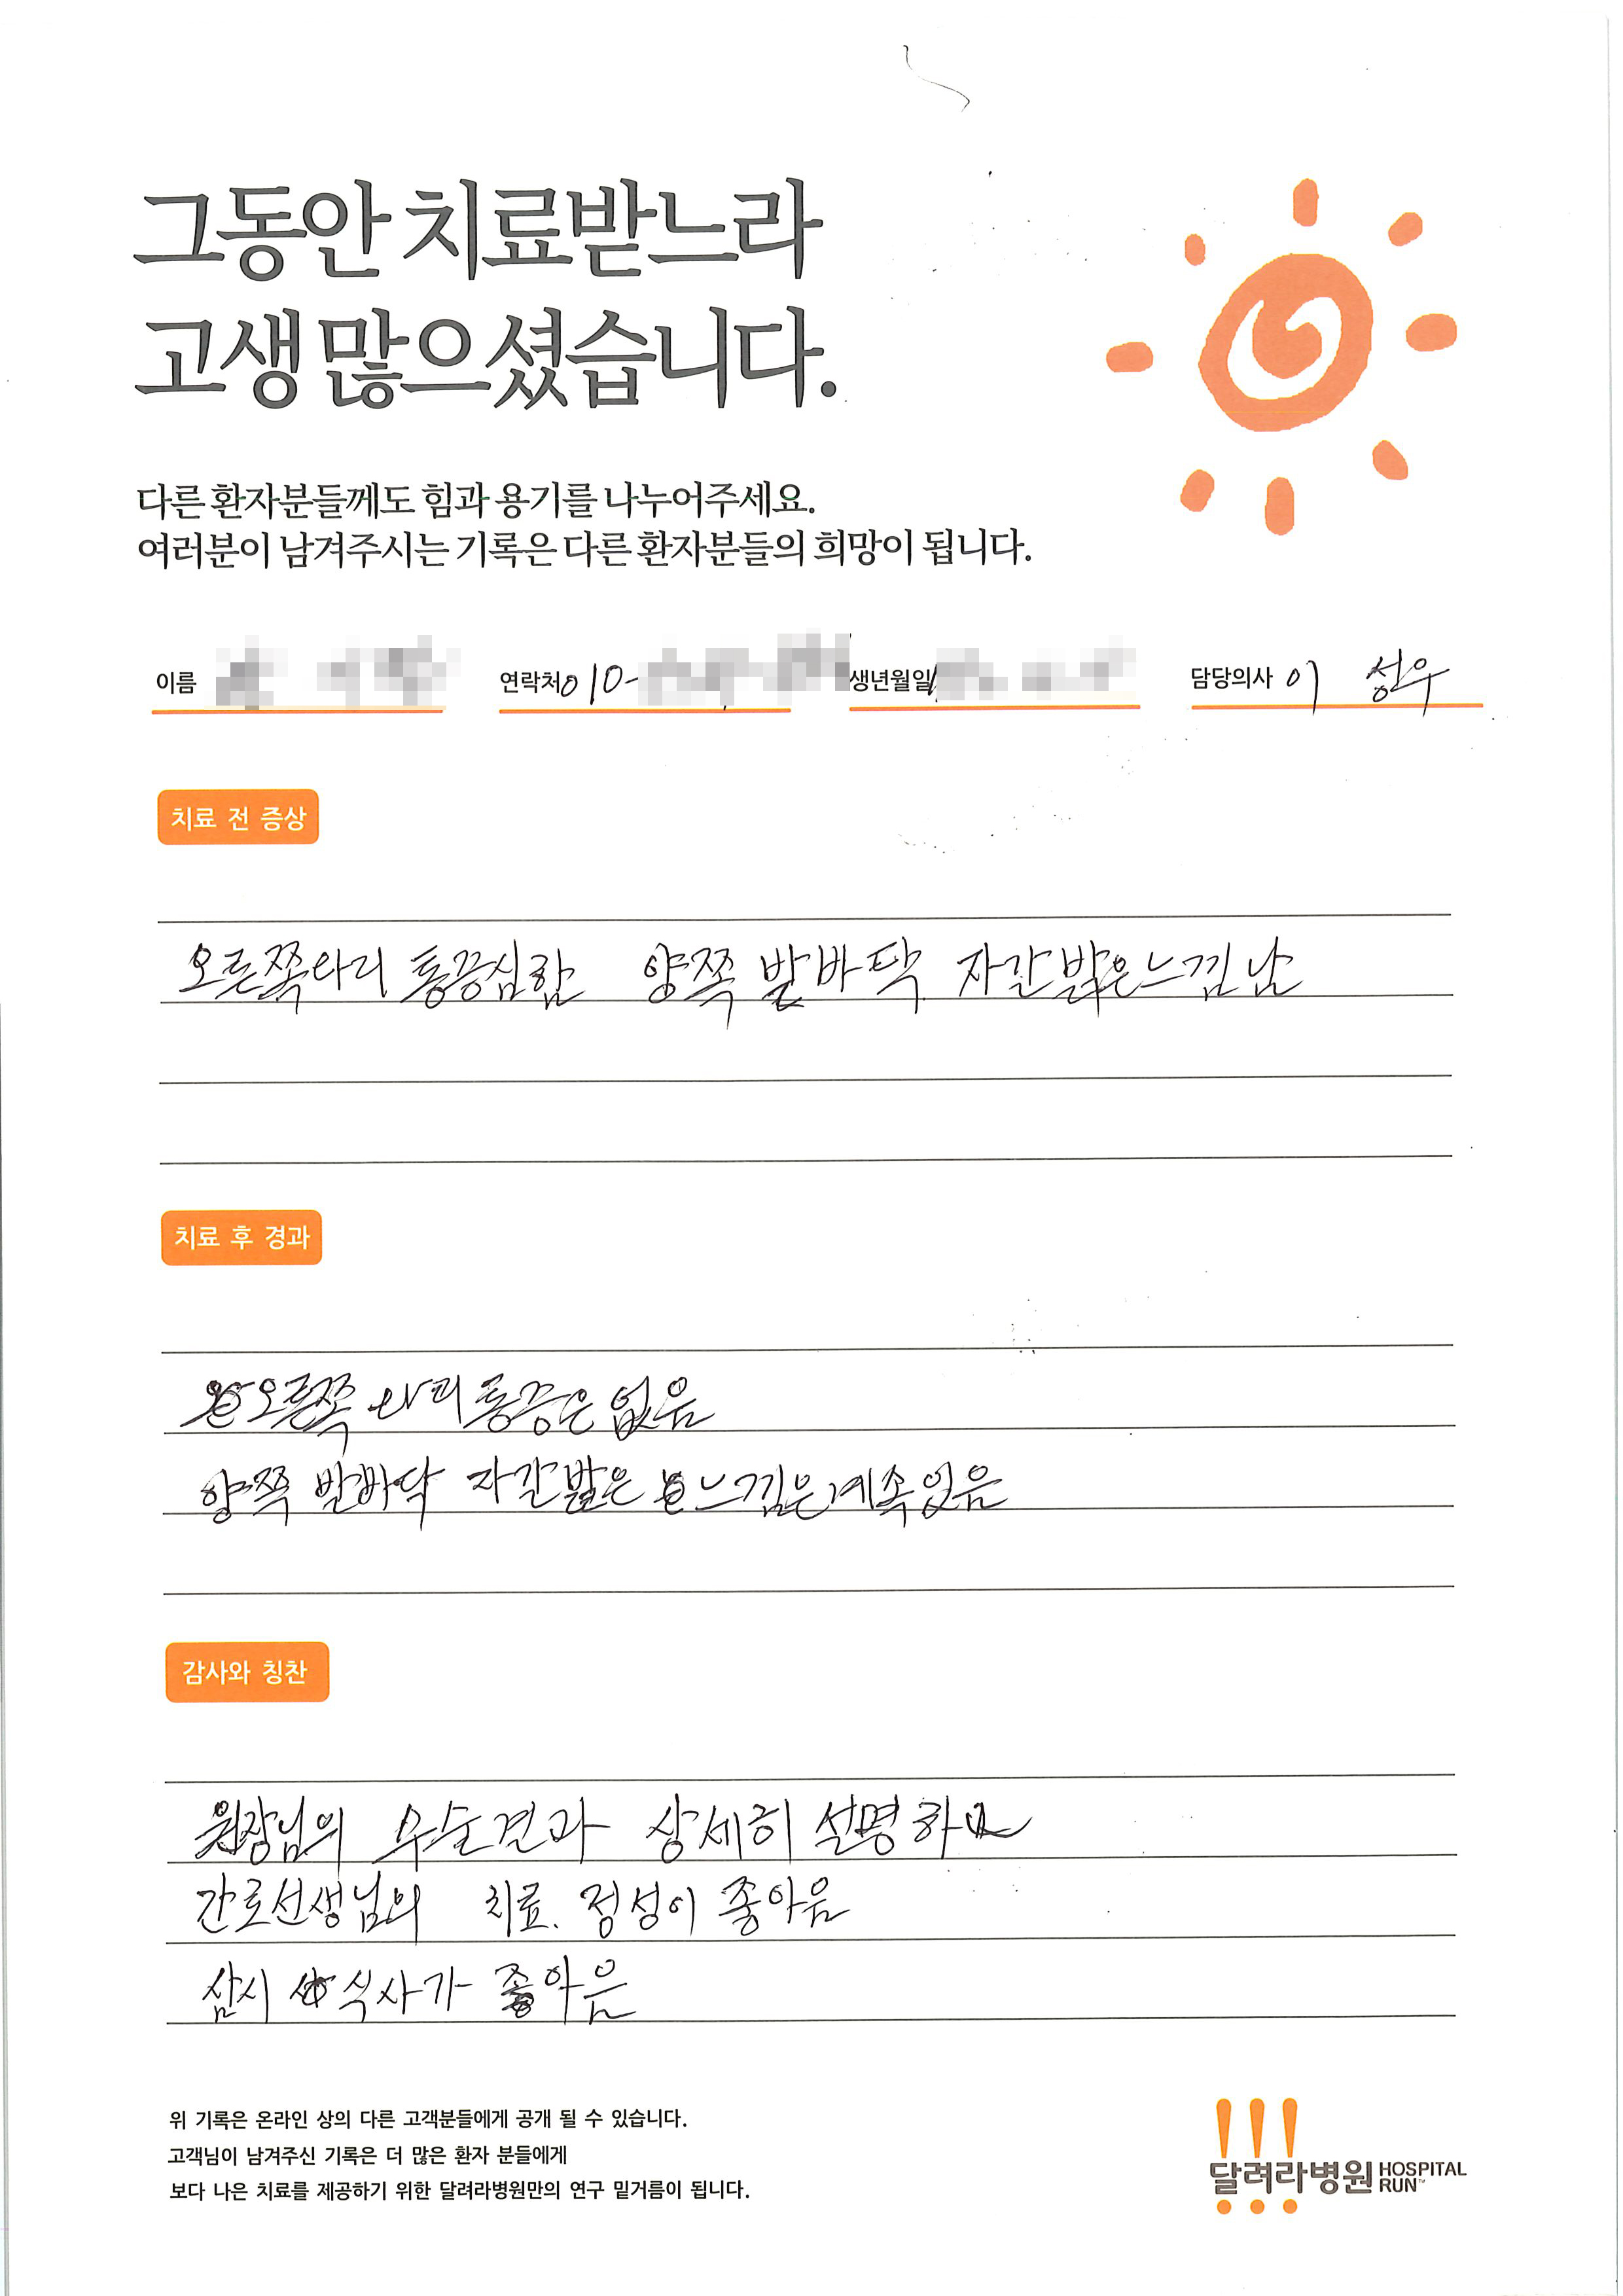 그동안 치료받느라
고생 많으셨습니다.
다른 환자분들께도 힘과 용기를 나누어주세요.
여러분이 남겨주시는 기록은 다른 환자분들의 희망이 됩니다.
이름 연락처 010- 생년월일 담당의사 이 성우
치료 전 증상
오른쪽다리 통증심함 양쪽 발바닥 자갈밟은느낌남
치료 후 경과
오른쪽 다리통증은 없음
양쪽 발바닥 자갈밟은 느낌은계속있음
감사와 칭찬
원장님의 수술결과 상세히 설명하고
간호선생님의 치료. 정성이 좋아음
삼시 식사가 좋아음
위 기록은 온라인 상의 다른 고객분들에게 공개 될 수 있습니다.
고객님이 남겨주신 기록은 더 많은 환자 분들에게
보다 나은 치료를 제공하기 위한 달려라병원만의 연구 밑거름이 됩니다.
달려라병원 HOSPITAL RUN™